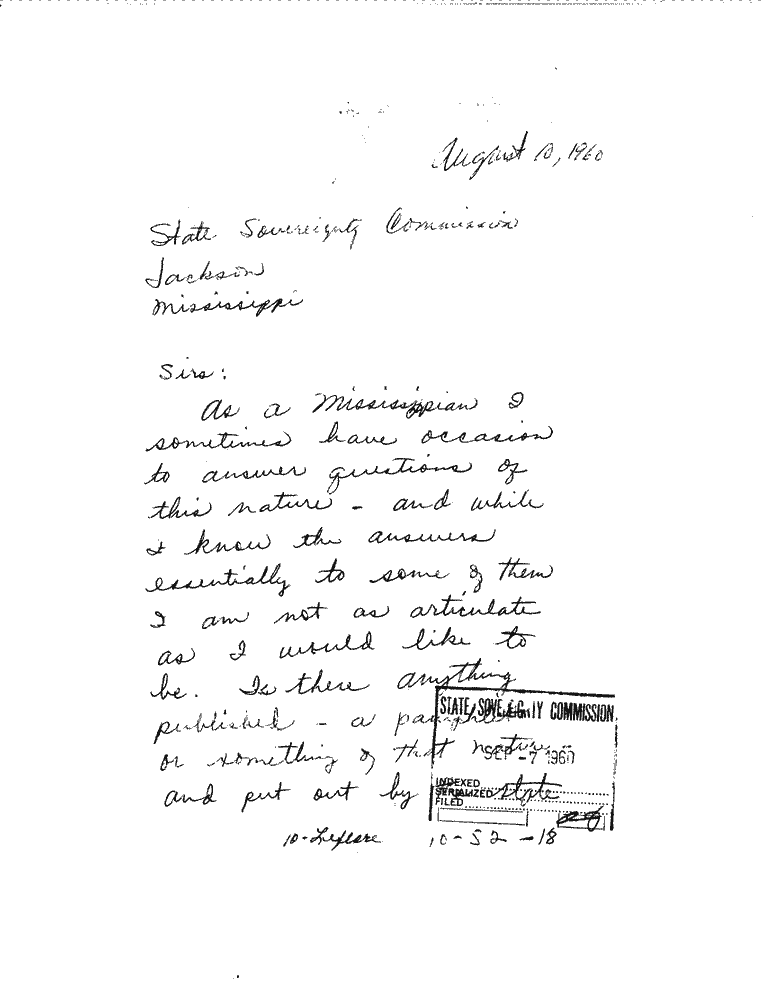 August 10, 1960
State Sovereignty Commission
Jackson
Mississippi
Sirs:
As a Mississippian I
sometimes have occasion
to answer questions of
this nature - and while
I know the answers
essentially to some of them
I am not as articulate
as I would like to
be. Is there anything
published - a pamphlet
or something of that nature
and put out by state
STATE SOVEREIGNTY COMMISSION
SEP -7 1960
INDEXED
SERIALIZED
FILED
10-Leflore 10-52-18